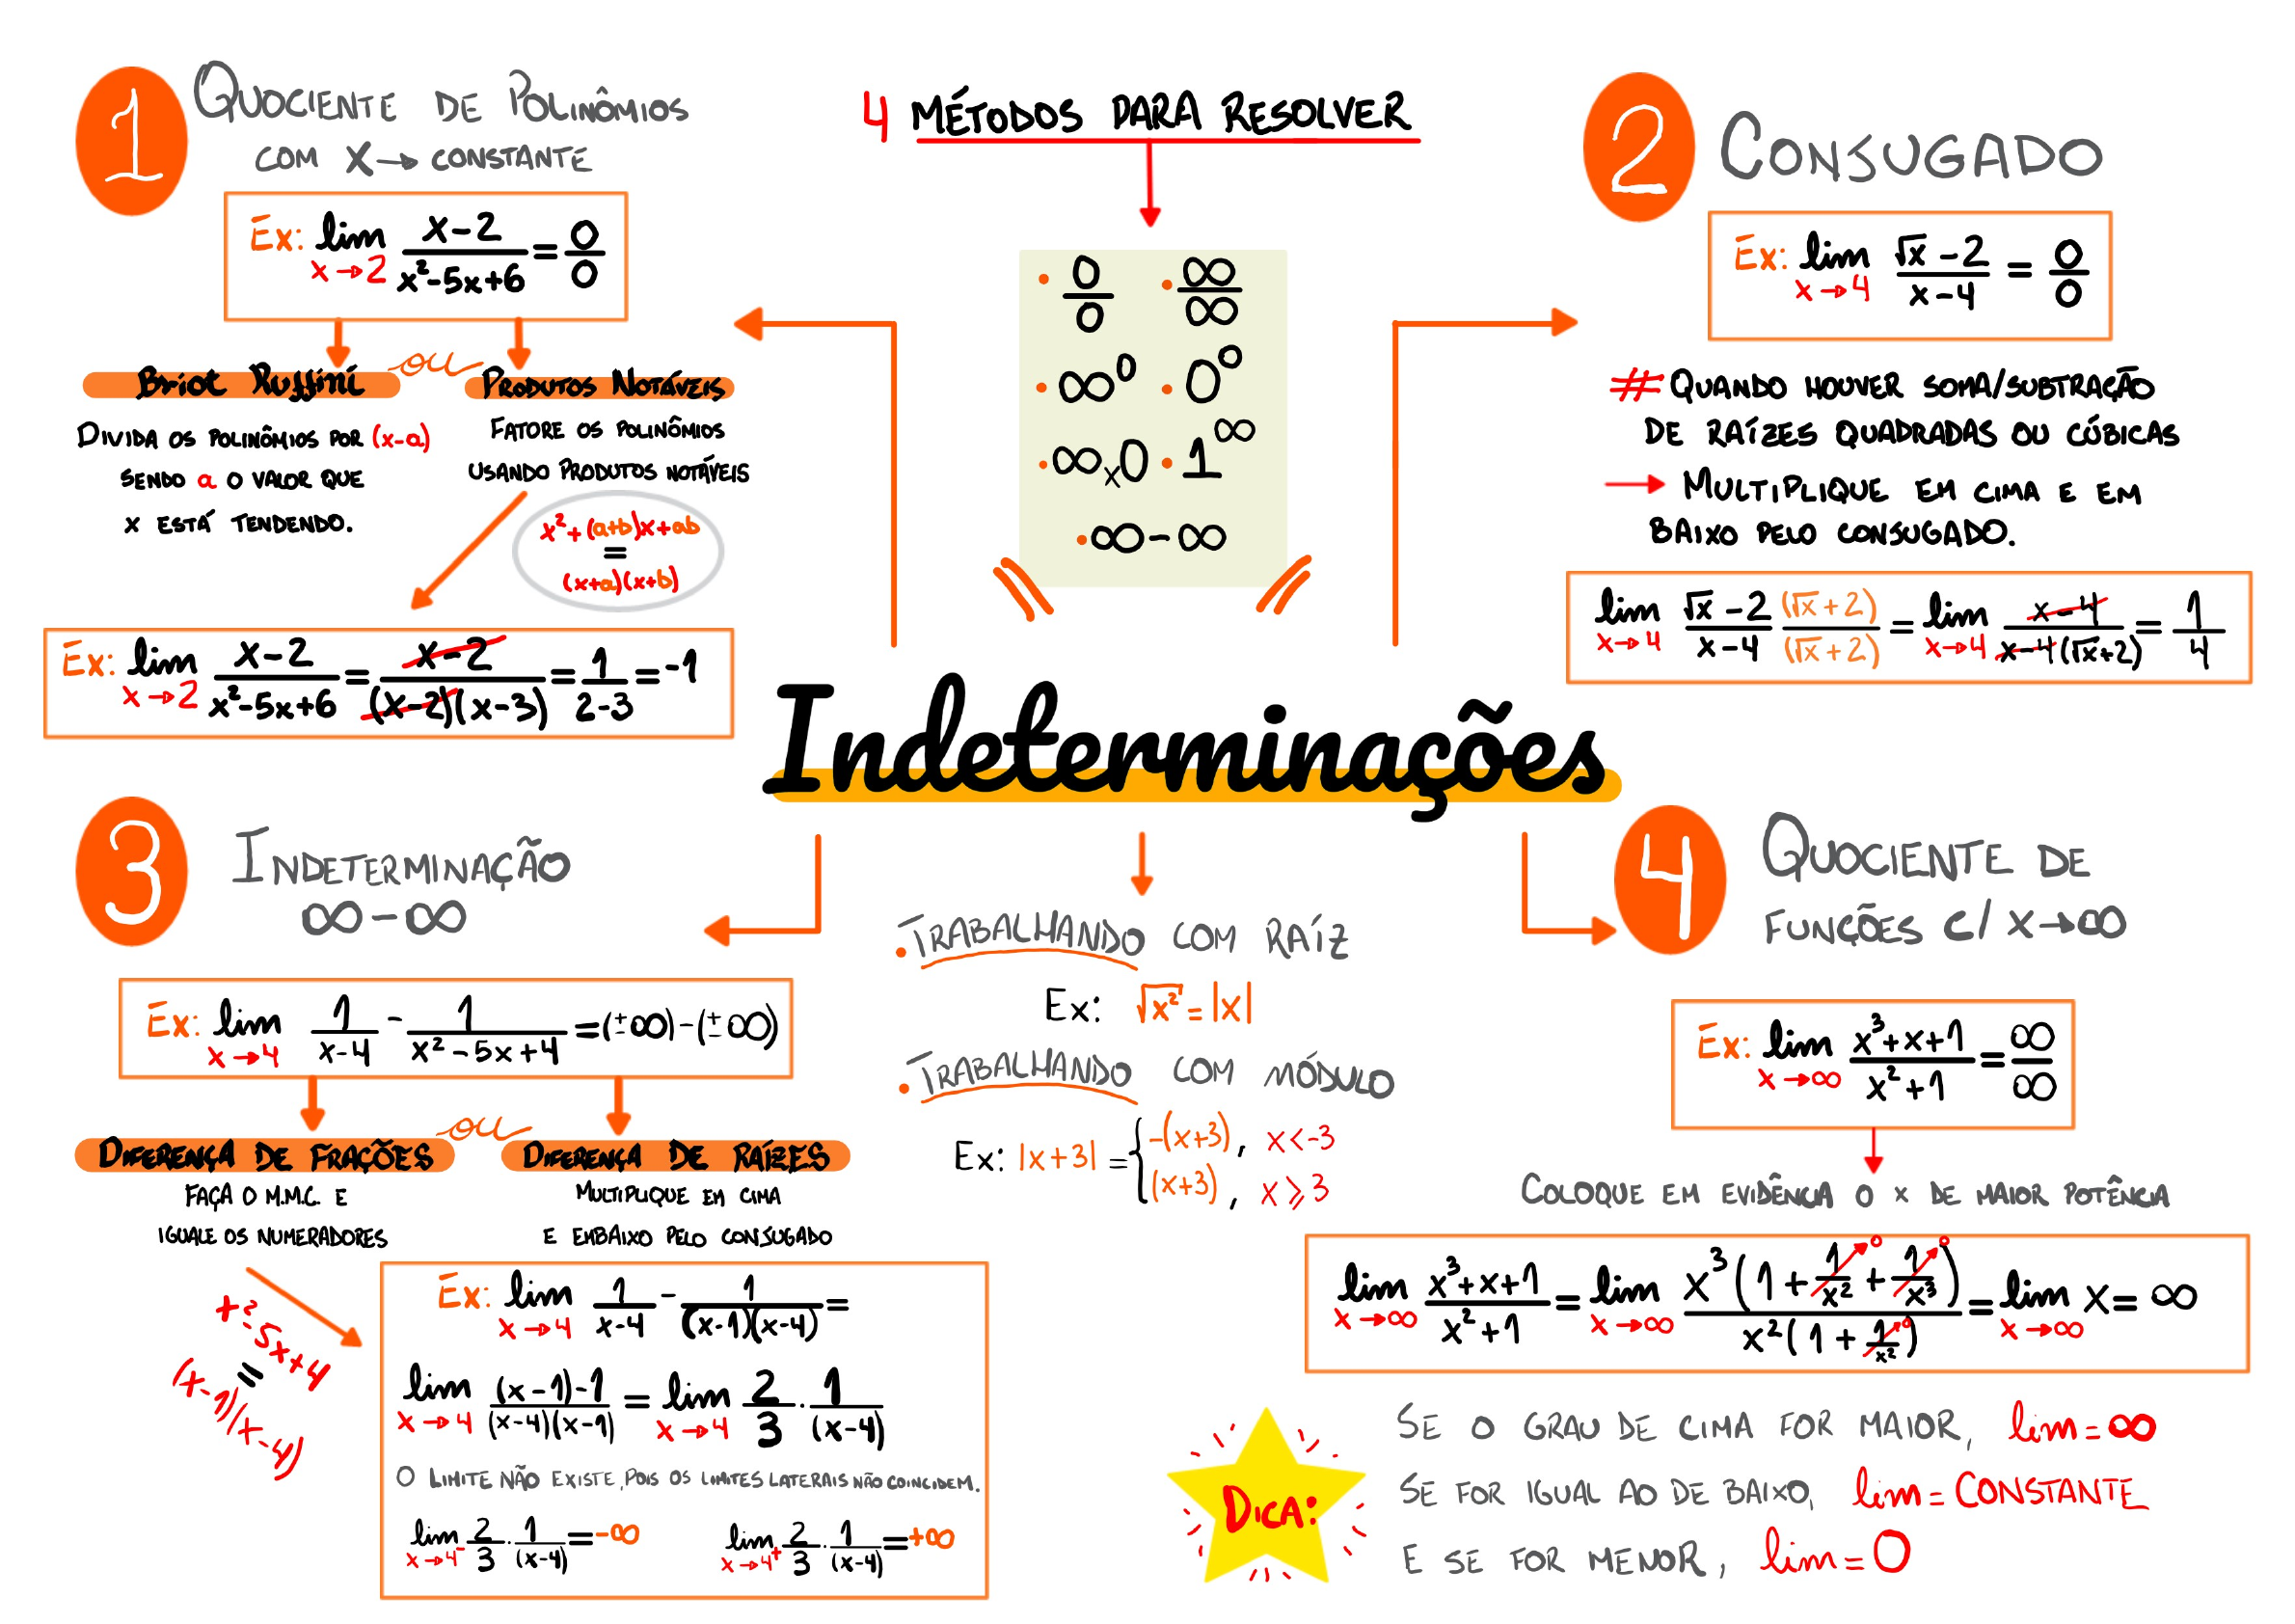 4 MÉTODOS PARA RESOLVER
• 0/0 • ∞/∞
• ∞⁰ • 0⁰
• ∞×0 • 1^∞
• ∞-∞
Indeterminações
1
QUOCIENTE DE POLINÔMIOS
COM X→ CONSTANTE
Ex: lim x→2 (x-2)/(x²-5x+6) = 0/0
Briot Ruffini
ou
PRODUTOS NOTÁVEIS
DIVIDA OS POLINÔMIOS POR (x-a)
SENDO a O VALOR QUE
X ESTÁ TENDENDO.
FATORE OS POLINÔMIOS
USANDO PRODUTOS NOTÁVEIS
x²+(a+b)x+ab
=
(x+a)(x+b)
Ex: lim x→2 (x-2)/(x²-5x+6) = (x-2)/((x-2)(x-3)) = 1/(2-3) = -1
2
CONJUGADO
Ex: lim x→4 (√x-2)/(x-4) = 0/0
# QUANDO HOUVER SOMA/SUBTRAÇÃO
DE RAÍZES QUADRADAS OU CÚBICAS
→ MULTIPLIQUE EM CIMA E EM
BAIXO PELO CONJUGADO.
lim x→4 (√x-2)/(x-4) (√x+2)/(√x+2) = lim x→4 (x-4)/(x-4(√x+2)) = 1/4
3
INDETERMINAÇÃO
∞-∞
Ex: lim x→4 1/(x-4) - 1/(x²-5x+4) = (±∞)-(±∞)
DIFERENÇA DE FRAÇÕES
ou
DIFERENÇA DE RAÍZES
FAÇA O M.M.C. E
IGUALE OS NUMERADORES
MULTIPLIQUE EM CIMA
E EMBAIXO PELO CONJUGADO
x²-5x+4
=
(x-1)(x-4)
Ex: lim x→4 1/(x-4) - 1/((x-1)(x-4)) =
lim x→4 ((x-1)-1)/((x-4)(x-1)) = lim x→4 2/3 · 1/(x-4)
O LIMITE NÃO EXISTE, POIS OS LIMITES LATERAIS NÃO COINCIDEM.
lim x→4⁻ 2/3 · 1/(x-4) = -∞
lim x→4⁺ 2/3 · 1/(x-4) = +∞
• TRABALHANDO COM RAÍZ
Ex: √x² = |x|
• TRABALHANDO COM MÓDULO
Ex: |x+3| = { -(x+3), x<-3
(x+3), x⩾3
4
QUOCIENTE DE
FUNÇÕES C/ X→∞
Ex: lim x→∞ (x³+x+1)/(x²+1) = ∞/∞
COLOQUE EM EVIDÊNCIA O x DE MAIOR POTÊNCIA
lim x→∞ (x³+x+1)/(x²+1) = lim x→∞ x³(1+1/x²→0+1/x³→0)/(x²(1+1/x²→0)) = lim x→∞ x = ∞
DICA:
SE O GRAU DE CIMA FOR MAIOR, lim=∞
SE FOR IGUAL AO DE BAIXO, lim=CONSTANTE
E SE FOR MENOR, lim=0